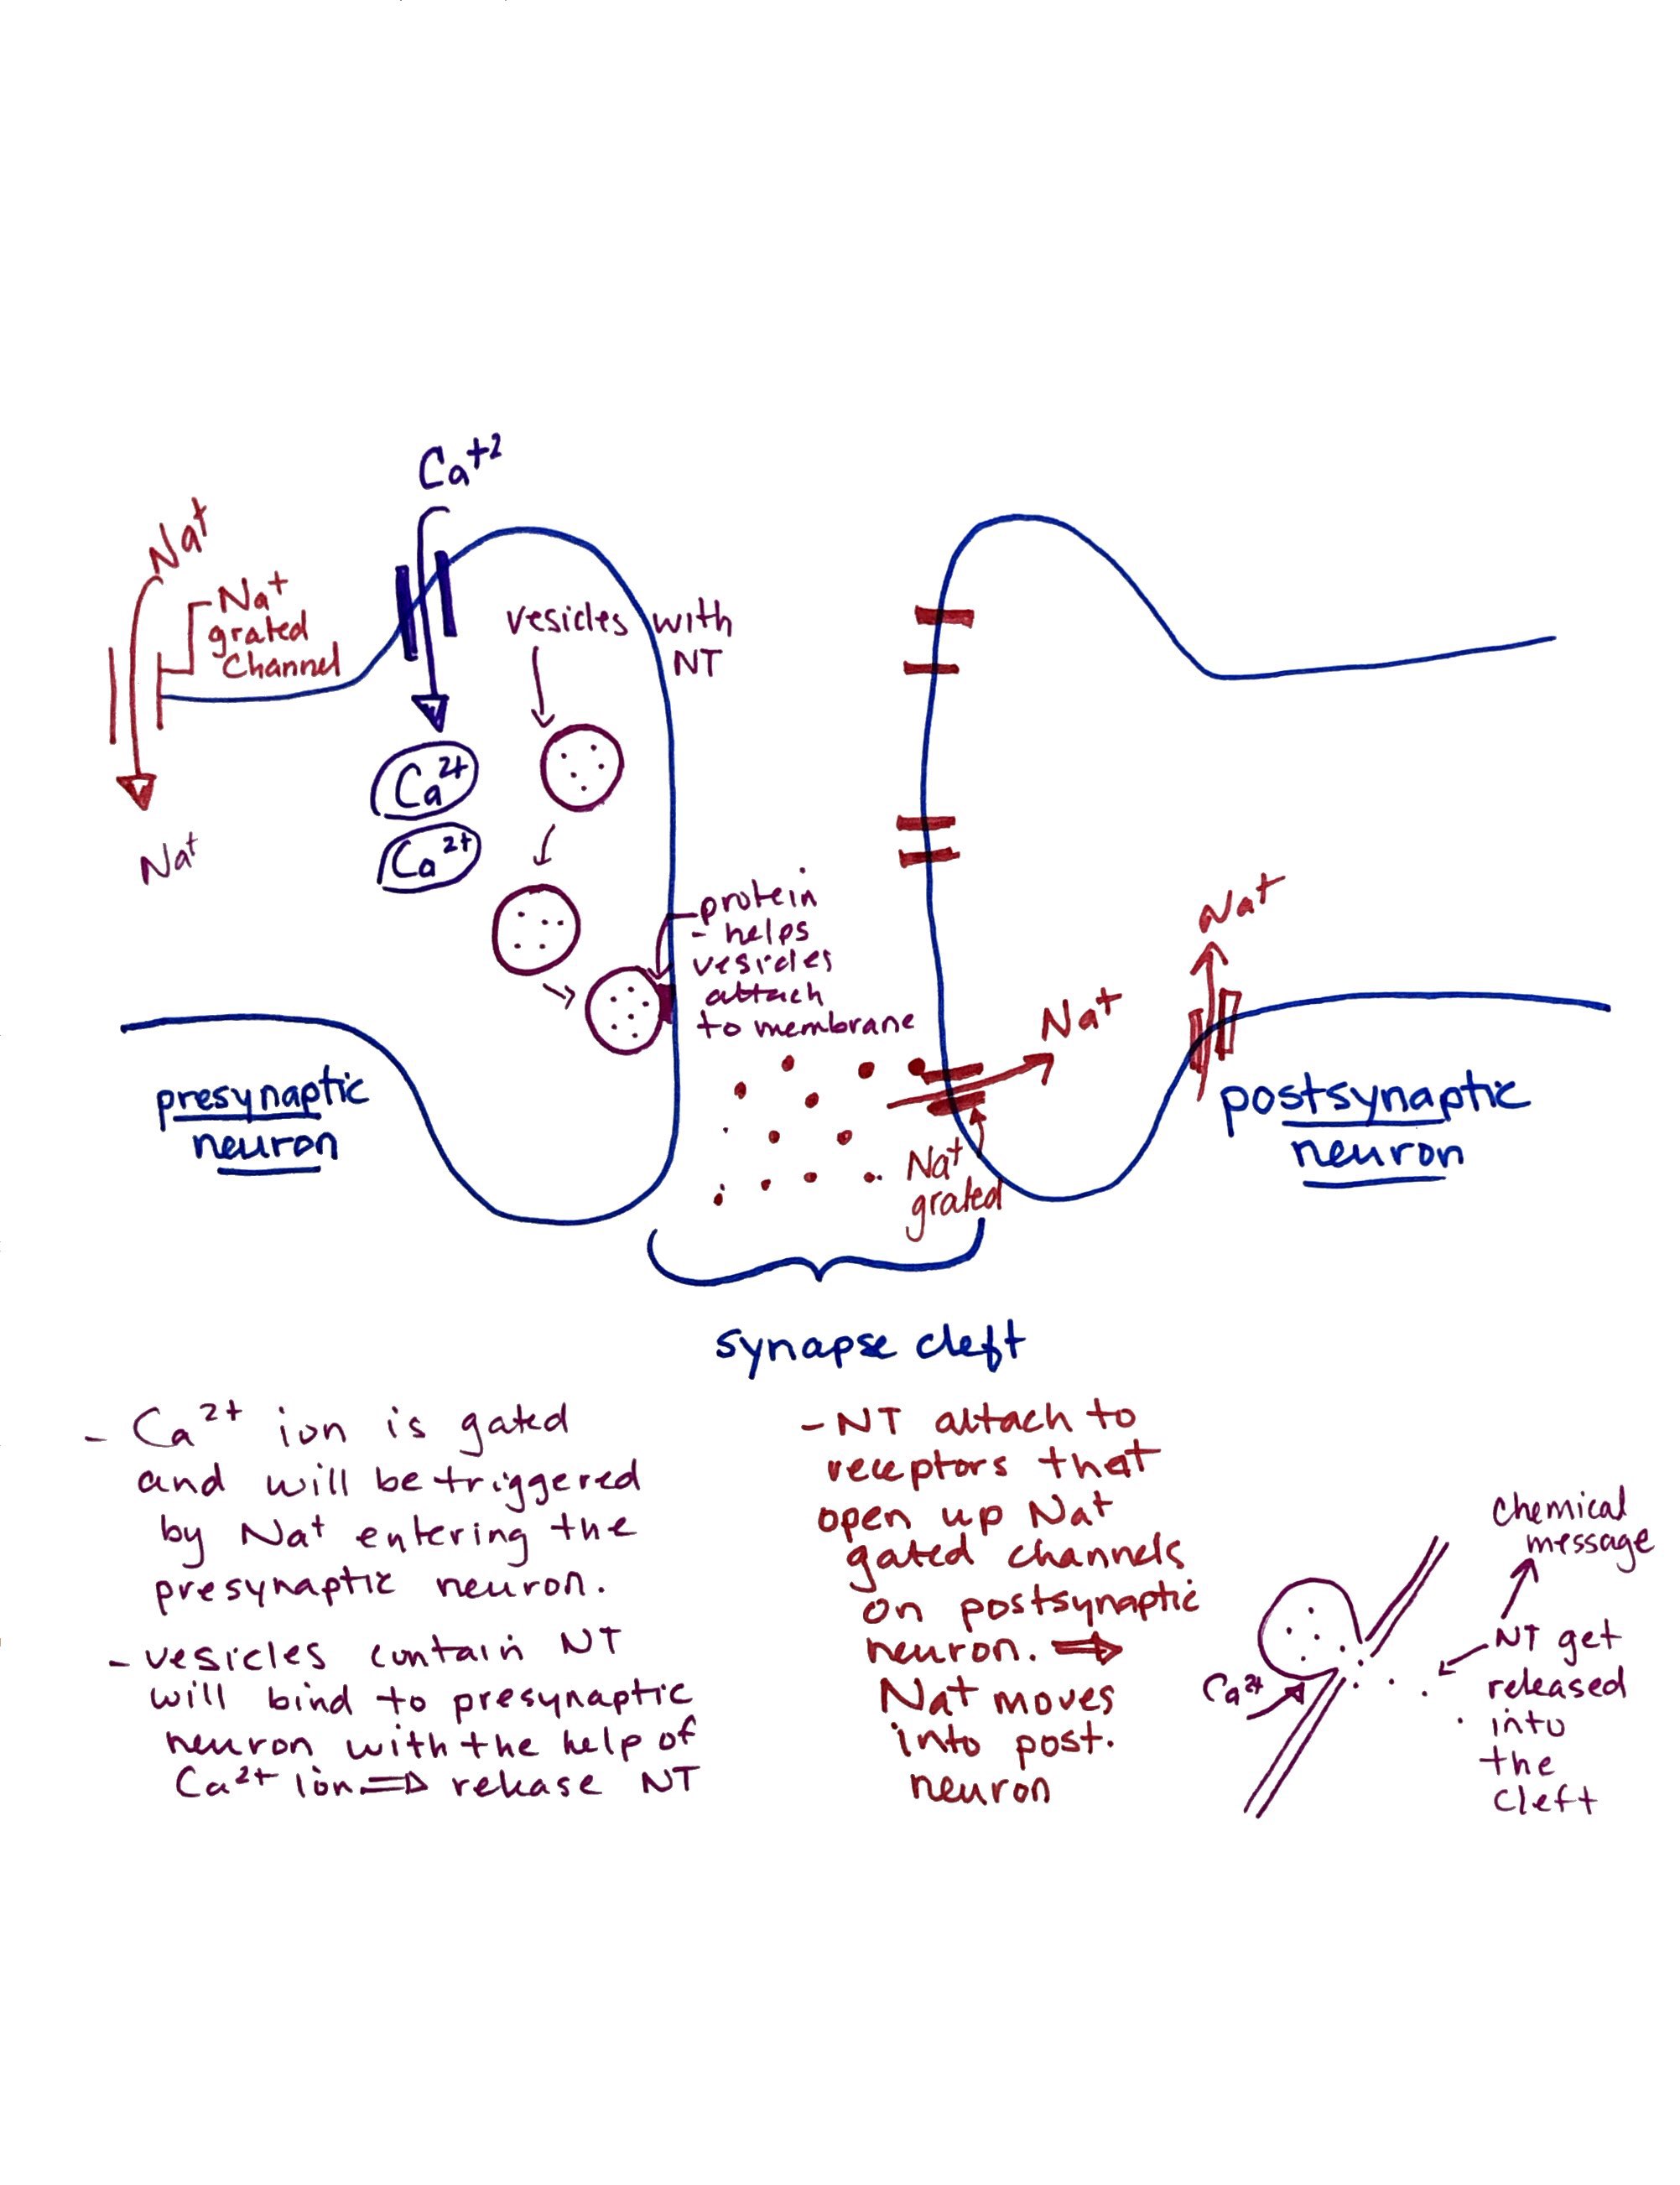 Ca+2
Na+
Na+
grated
Channel
vesicles with
NT
Ca2+
Ca2+
Na+
protein
- helps
vesicles
attach
to membrane
Na+
Na+
Na+
grated
presynaptic
neuron
postsynaptic
neuron
synapse cleft
- Ca2+ ion is gated
and will be triggered
by Na+ entering the
presynaptic neuron.
- vesicles contain NT
will bind to presynaptic
neuron with the help of
Ca2+ ion ⇒ release NT
- NT attach to
receptors that
open up Na+
gated channels
on postsynaptic
neuron. ⇒
Na+ moves
into post.
neuron
chemical
message
NT get
released
into
the
cleft
Ca2+